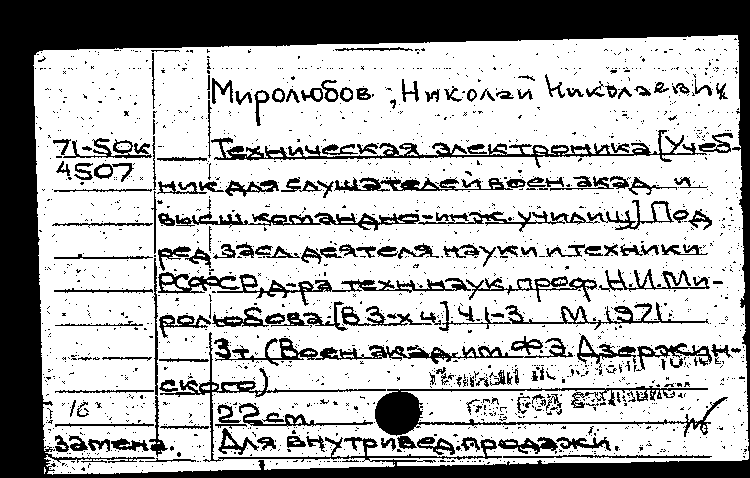 Миролюбов, Николай Николаевич
71-50к Техническая электроника. [Учеб-
4507
ник для слушателей воен. акад. и
высш. командно-инж. училищ] Под
ред. засл. деятеля науки и техники
РСФСР, д-ра техн. наук, проф. Н.И. Ми-
ролюбова. [В 3-х ч.] Ч. 1-3. М., 1971.
3т. (Воен. акад. им. Ф.Э. Дзержин-
ского)
16 22 см.
Замена. Для внутривед. продажи.